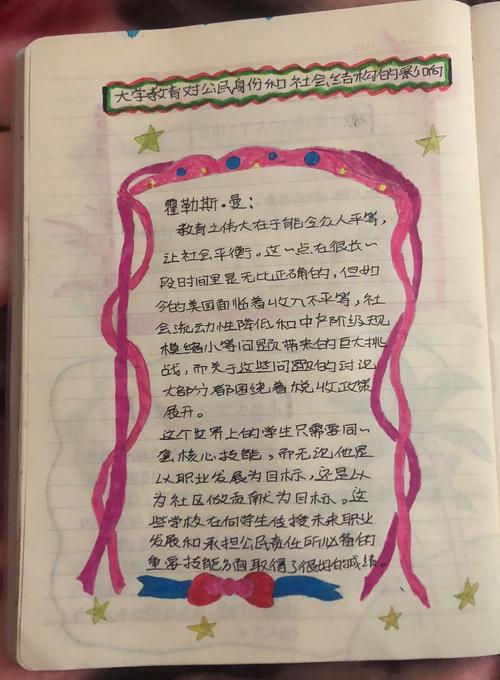 大学教育对公民身份和社会结构的影响
霍勒斯·曼：
教育之伟大在于能令众人平等，
让社会平衡。这一点在很长一
段时间里是无比正确的，但如
今的美国面临着收入不平等，社
会流动性降低和中产阶级规
模缩小等问题带来的巨大挑
战，而关于这些问题的讨论
大部分都围绕着税收政策
展开。
这个世界上的学生只需要同一
套核心技能，而无论他是
以职业发展为目标，还是以
为社区做贡献为目标。这
些学校在向学生传授未来职业
发展和承担公民责任所必备的
重要技能方面取得了很好的成绩。